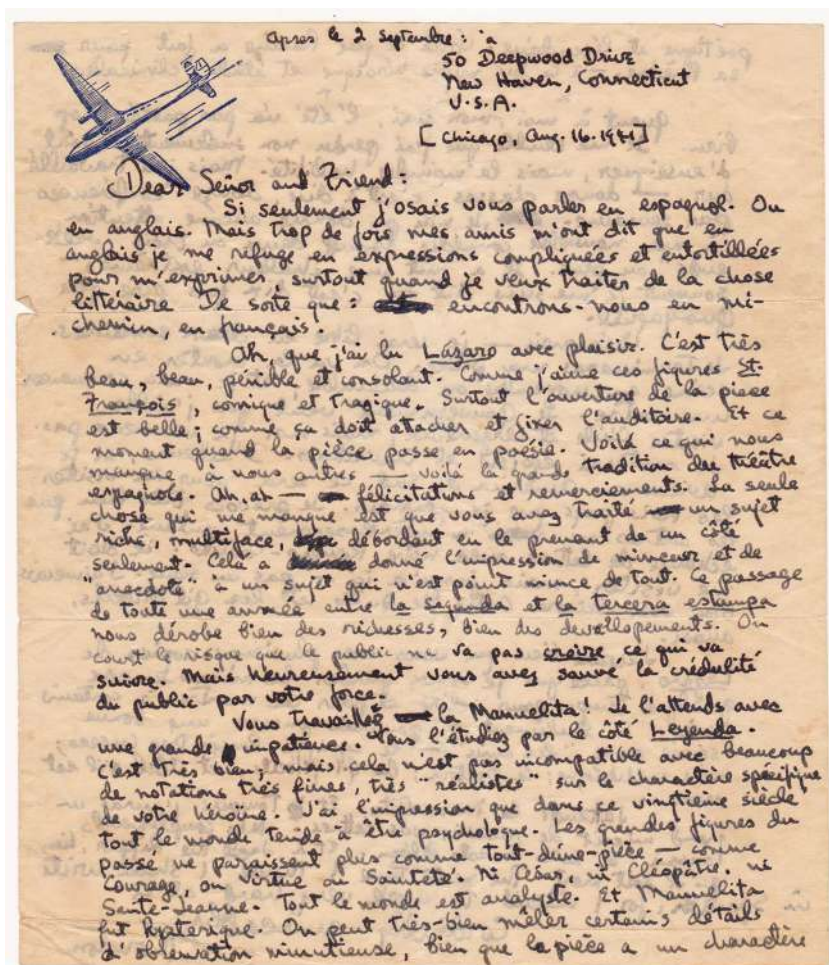 Après le 2 septembre: à
50 Deepwood Drive
New Haven, Connecticut
U.S.A.
[Chicago, Aug. 16. 1941]
Dear Señor and Friend:
Si seulement j'osais vous parler en espagnol. Ou
en anglais. Mais trop de fois mes amis m'ont dit que en
anglais je me réfuge en expressions compliquées et entortillées
pour m'exprimer, surtout quand je veux traiter de la chose
littéraire. De sorte que: encontrons-nous en mi-
chemin, en français.
Ah, que j'ai lu Lázaro avec plaisir. C'est très
beau, beau, pénible et consolant. Comme j'aime ces figures St.
François, comique et tragique. Surtout l'ouverture de la pièce
est belle; comme ça doit attacher et fixer l'auditoire. Et ce
moment quand la pièce passe en poésie. Voilà ce qui nous
manque à nous autres — voilà la grande tradition du théâtre
espagnole. Ah, ah — félicitations et remerciements. La seule
chose qui me manque est que vous avez traité un sujet
riche, multiface, débordant en le prenant de un côté
seulement. Cela a donné l'impression de minceur et de
"anecdote" à un sujet qui n'est point mince de tout. Ce passage
de toute une année entre la segunda et la tercera estampa
nous dérobe bien des richesses, bien des devellopements. On
court le risque que le public ne va pas croire ce qui va
suivre. Mais heureusement vous avez sauvé la crédulité
du public par votre force.
Vous travaillez la Manuelita! Je l'attends avec
une grande impatience. Vous l'étudiez par le côté Leyenda.
C'est très bien; mais cela n'est pas incompatible avec beaucoup
de notations très fines, très "réalistes" sur le charactère spécifique
de votre héroïne. J'ai l'impression que dans ce vingtième siècle
tout le monde tende à être psychologue. Les grandes figures du
passé ne paraissent plus comme tout-d'une-pièce — comme
Courage, ou Virtue ou Sainteté. Ni César, ni Cléopâtre, ni
Sante-Jeanne. Tout le monde est analyste. Et Manuelita
fut hysterique. On peut très-bien mêler certains détails
d'observation minutieuse, bien que la pièce a un charactère